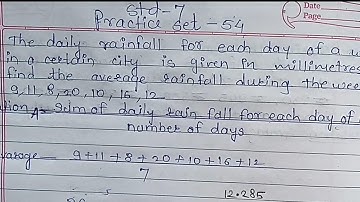 Std-7
Date
Practice Set-54
Page
The daily rainfall for each day of a
in a certain city is given in millimetres
find the average rainfall during the wee
9,11,8,20,10,16,12
tion A= sum of daily rain fall for each day of
number of days
varage 9+11+8+20+10+16+12
7
12.285